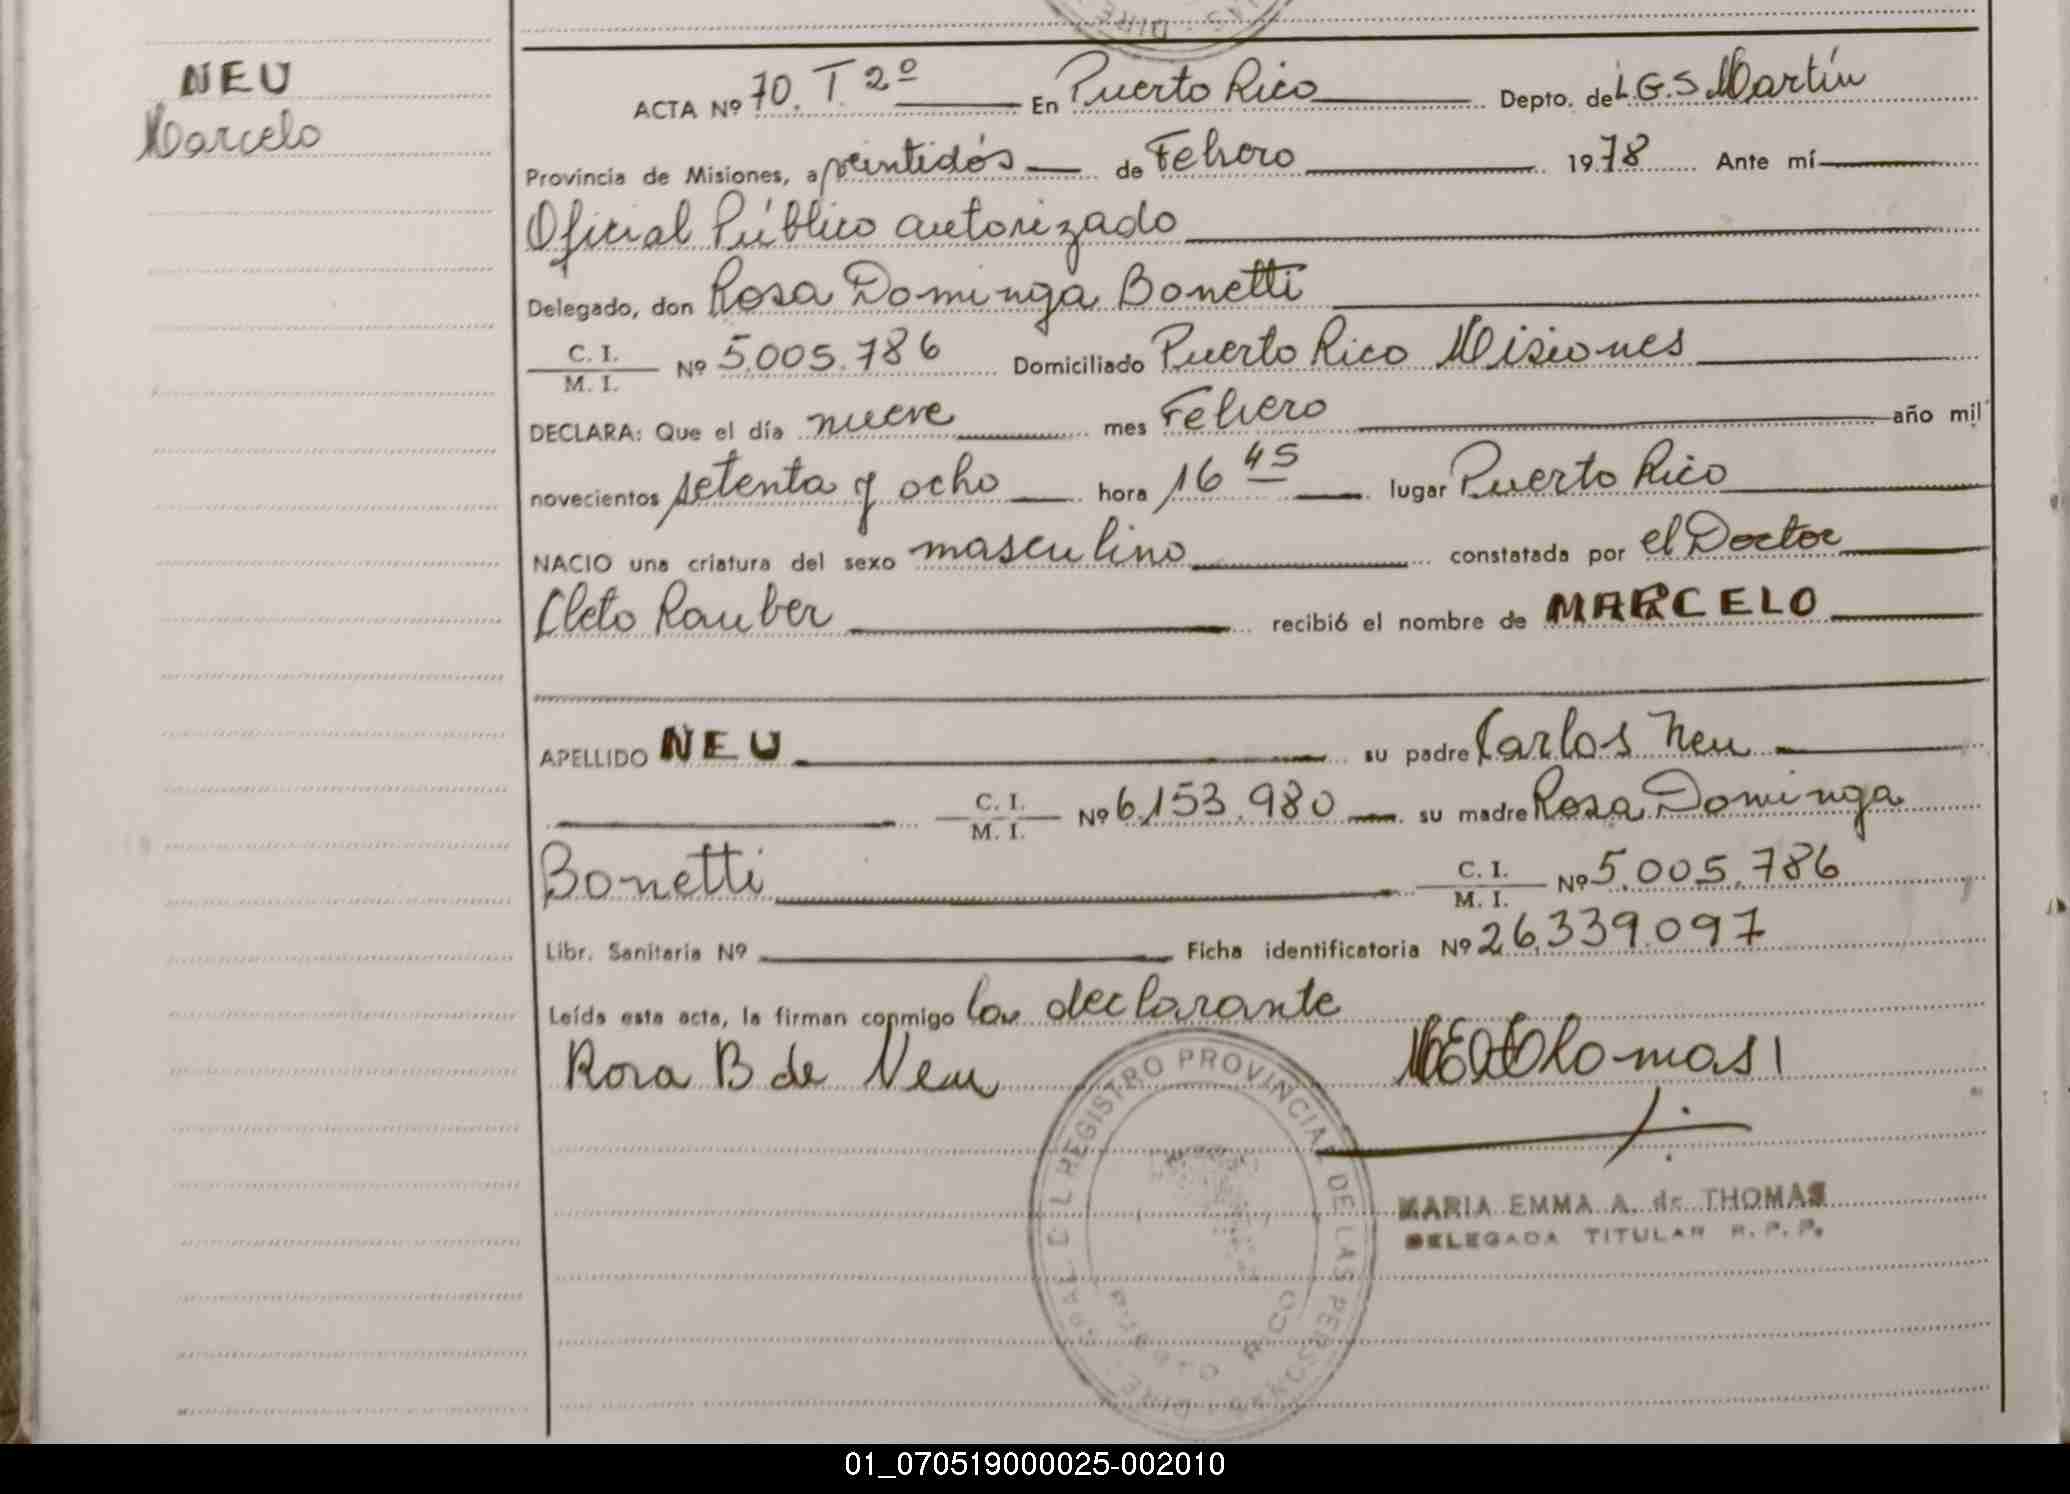 NEU
Marcelo
ACTA Nº 70. T. 2º En Puerto Rico Depto. de L.G.S. Martín
Provincia de Misiones, a veintidós de Febrero 1978 Ante mí
Oficial Público autorizado
Delegado, don Rosa Dominga Bonetti
C. I.
M. I. Nº 5.005.786 Domiciliado Puerto Rico Misiones
DECLARA: Que el día nueve mes Febrero año mil
novecientos setenta y ocho hora 16 45 lugar Puerto Rico
NACIO una criatura del sexo masculino constatada por el Doctor
Cleto Rauber recibió el nombre de MARCELO
APELLIDO NEU su padre Carlos Neu
C. I.
M. I. Nº 6.153.980 su madre Rosa Dominga
Bonetti C. I.
M. I. Nº 5.005.786
Libr. Sanitaria Nº Ficha identificatoria Nº 26.339.097
Leída esta acta, la firman conmigo la declarante
Rosa B de Neu
REGISTRO PROVINCIAL DE LAS PERSONAS
PUERTO RICO
MARIA EMMA A. de THOMAS
DELEGADA TITULAR R. P. P.
01_070519000025-002010